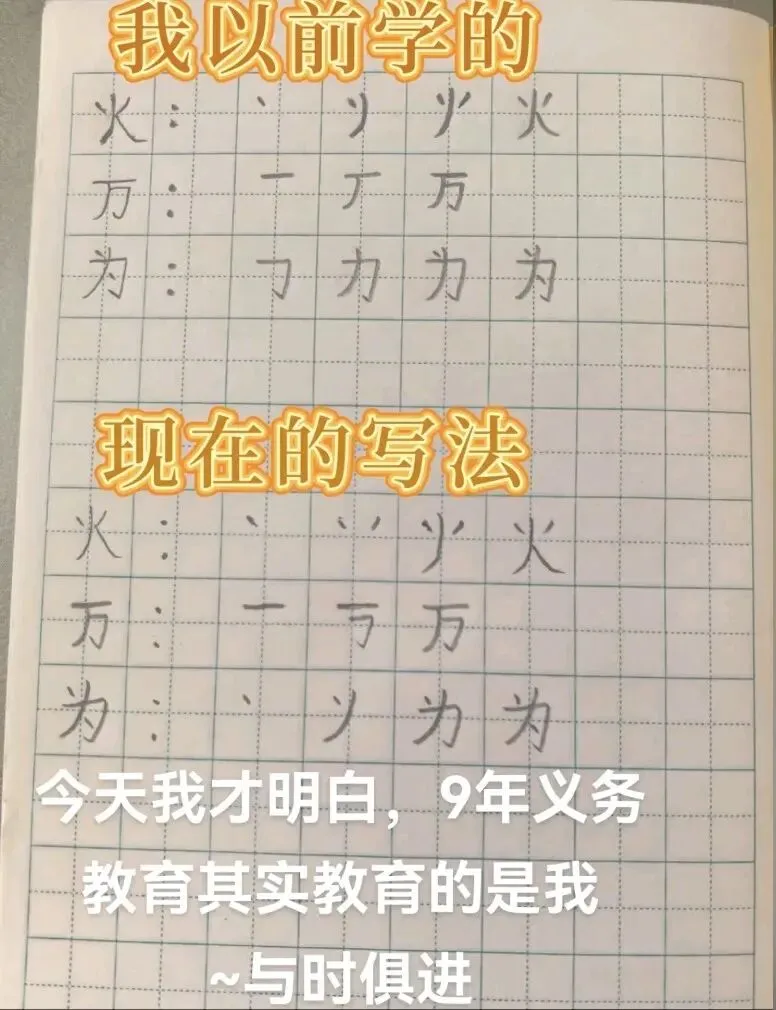 我以前学的
火： 丶 丷 火
万： 一 丆 万
为： 𠃌 力 为
现在的写法
火： 丶 丷 火
万： 一 丂 万
为： 丶 为
今天我才明白，9年义务
教育其实教育的是我
~与时俱进